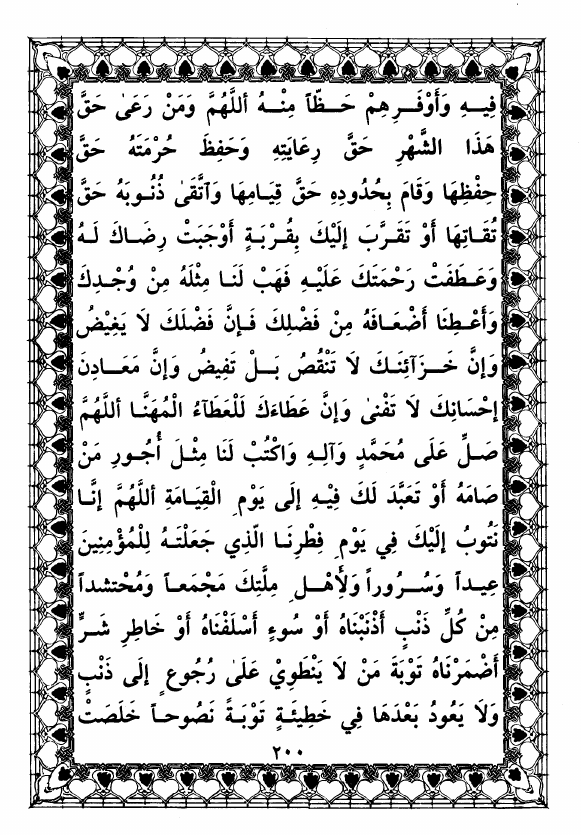 فِيهِ وَأَوْفَرِهِمْ حَظّاً مِنْهُ أللَّهُمَّ وَمَنْ رَعَىٰ حَقَّ
هَذَا الشَّهْرِ حَقَّ رِعَايَتِهِ وَحَفِظَ حُرْمَتَهُ حَقَّ
حِفْظِهَا وَقَامَ بِحُدُودِهِ حَقَّ قِيَامِهَا وَآتَّقَىٰ ذُنُوبَهُ حَقَّ
تُقَاتِهَا أَوْ تَقَرَّبَ إلَيْكَ بِقُرْبَةٍ أَوْجَبَتْ رِضَاكَ لَهُ
وَعَطَفَتْ رَحْمَتَكَ عَلَيْهِ فَهَبْ لَنَا مِثْلَهُ مِنْ وُجْدِكَ
وَأَعْطِنَا أَضْعَافَهُ مِنْ فَضْلِكَ فَإنَّ فَضْلَكَ لَا يَغِيْضُ
وَإنَّ خَزَآئِنَكَ لَا تَنْقُصُ بَلْ تَفِيضُ وَإنَّ مَعَادِنَ
إحْسَانِكَ لَا تَفْنىٰ وَإنَّ عَطَاءَكَ لَلْعَطَآءُ الْمُهَنَّا أللَّهُمَّ
صَلِّ عَلَى مُحَمَّدٍ وَآلِهِ وَاكْتُبْ لَنَا مِثْلَ أُجُورِ مَنْ
صَامَهُ أَوْ تَعَبَّدَ لَكَ فِيْهِ إلَى يَوْمِ الْقِيَامَةِ أللَّهُمَّ إنَّا
نَتُوبُ إلَيْكَ فِي يَوْمِ فِطْرِنَا الّذِي جَعَلْتَهُ لِلْمُؤْمِنِينَ
عِيداً وَسُرُوراً وَلأِهْلِ مِلَّتِكَ مَجْمَعاً وَمُحْتشداً
مِنْ كُلِّ ذَنْبٍ أَذْنَبْنَاهُ أَوْ سُوءٍ أَسْلَفْنَاهُ أَوْ خَاطِرِ شَرٍّ
أَضْمَرْنَاهُ تَوْبَةَ مَنْ لَا يَنْطَوِيْ عَلَىٰ رُجُوعٍ إلَى ذَنْبٍ
وَلَا يَعُودُ بَعْدَهَا فِي خَطِيئَةٍ تَوْبَةً نَصُوحاً خَلَصَتْ
٢٠٠